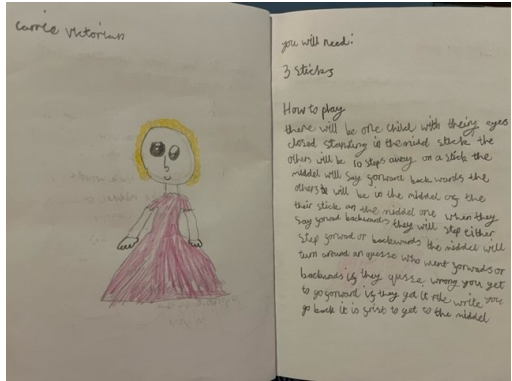 carrie victorian
you will need:
3 sticks
How to play
there will be one child with theiry eyes
closed standing in the middl stick the
others will be 10 steps away on a stick the
middel will say gorward back wards the
others will be in the middel og the
their stick an the middel one when they
say gorwad backwards they will step either
step gorwad or backwards the middel will
turn around an guesse who went gorwads or
backwads ig they gusse wrong you get
to go gorward ig they got it rite write you
go back it is girst to get to the middel